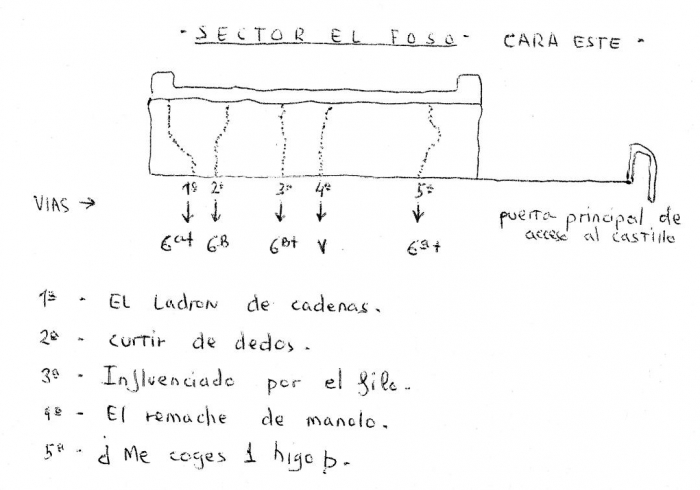 - SECTOR EL FOSO - CARA ESTE -
VIAS → 1ª 2ª 3ª 4ª 5ª
6a+ 6B 6B+ V 6a+
puerta principal de
acceso al castillo
1ª - El Ladron de cadenas.
2ª - curtir de dedos.
3ª - Influenciado por el filo.
4ª - El remache de manolo.
5ª - ¿Me coges 1 higo?.